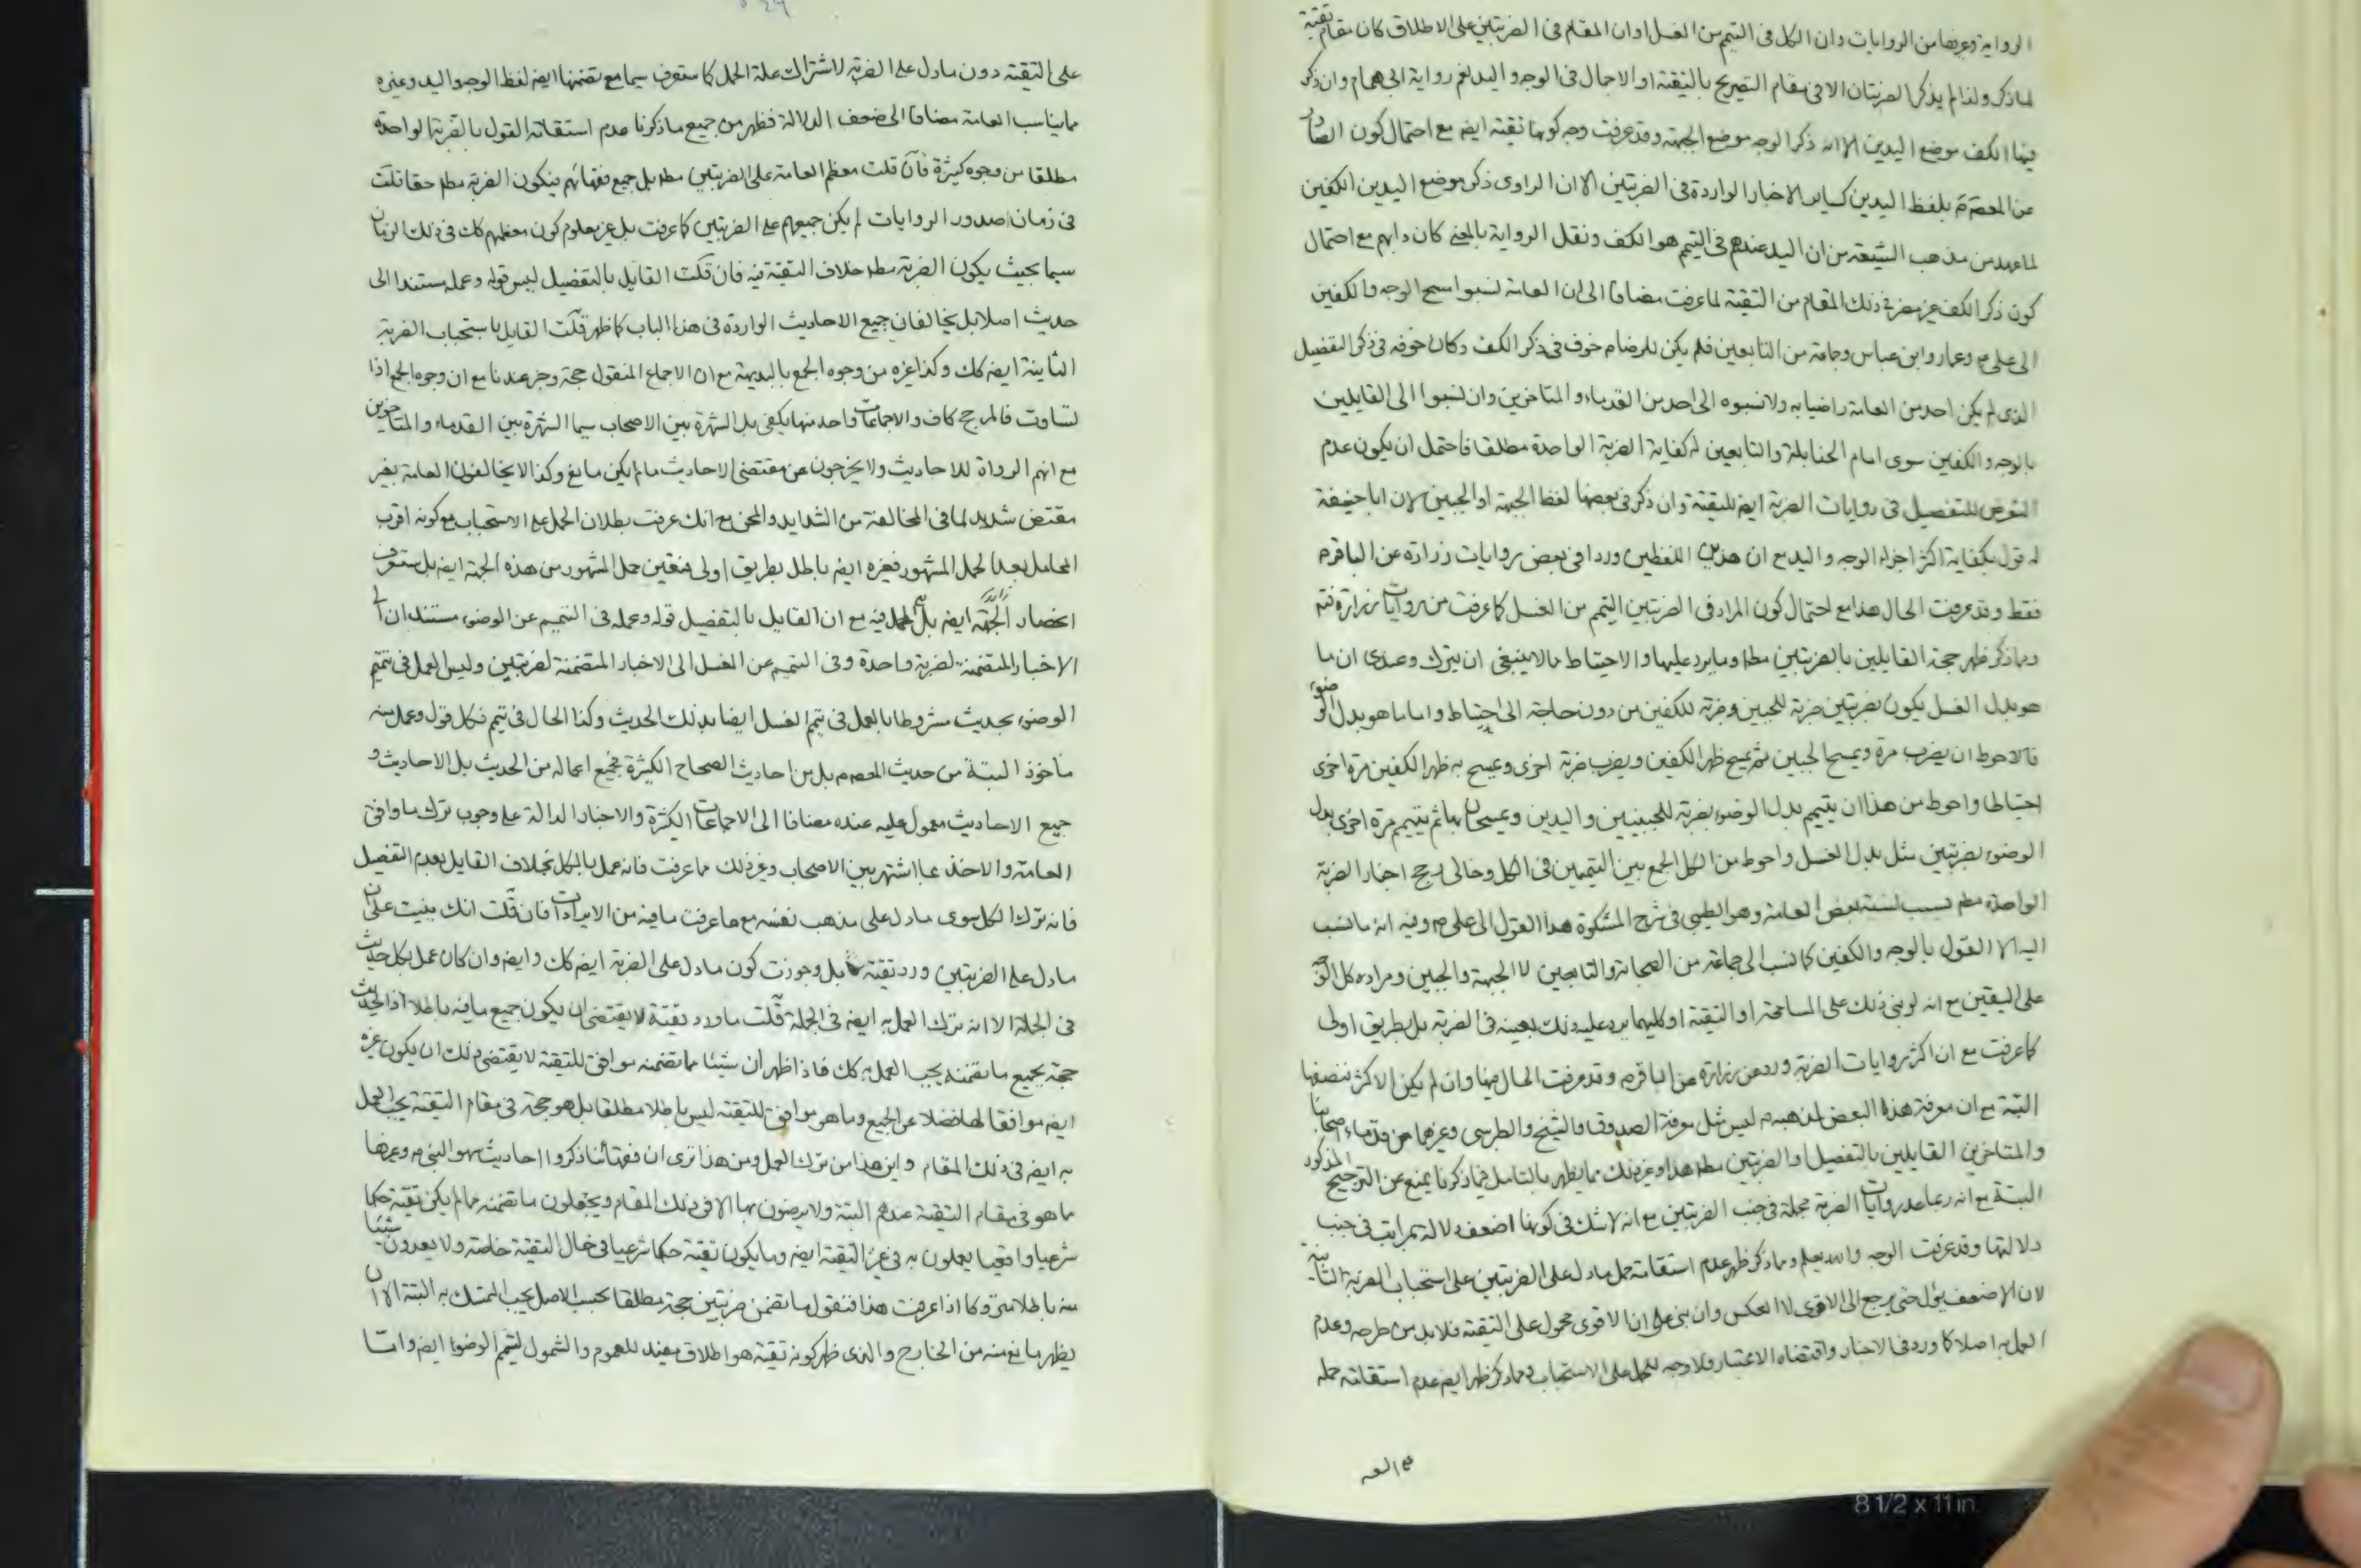 الرواية وغيرها من الروايات وان الكل في التيمم من الغسل او ان المقام في الضربتين على الاطلاق كان مقام تقية
لما ذكر ولذا لم يذكر الضربتان الا في مقام التصريح بالتقية او الاجمال في الوجه واليد نعم رواية ابي همام وان ذكر
فيها الكف موضع اليدين الا انه ذكر الوجه موضع الجبهة وقد عرفت وجه كونها تقية ايضا مع احتمال كون الصادر
عن المعصوم بلفظ اليدين كساير الاخبار الواردة في الضربتين الا ان الراوي ذكر موضع اليدين الكفين
لما عهد من مذهب الشيعة من ان اليد عندهم في التيمم هو الكف ونقل الرواية بالمعنى كان دابهم مع احتمال
كون ذكر الكف غير مضر في ذلك المقام من التقية لما عرفت مضافا الى ان العامة نسبوا مسح الوجه والكفين
الى علي ع وعمار وابن عباس وجامعة من التابعين فلم يكن للرضا م خوف في ذكر الكف وكان خوفه في ذكر التفصيل
الذي لم يكن احد من العامة راضيا به ولا نسبوه الى احد من القدماء والمتاخرين وان نسبوا الى القايلين
بالوجه والكفين سوى امام الحنابلة والتابعين له كفاية الضربة الواحدة مطلقا فاحتمل ان يكون عدم
التعرض للتفصيل في روايات الضربة ايضا للتقية وان ذكر في بعضها لفظ الجبهة او الجبين لان ابا حنيفة
له قول بكفاية اكثر اجزاء الوجه واليد مع ان هذين اللفظين وردا في بعض روايات زرارة عن الباقر م
فقط وقد عرفت الحال هذا مع احتمال كون المراد في الضربتين التيمم من الغسل كما عرفت من روايات زرارة فتم
وبما ذكر ظهر حجة القايلين بالضربتين مطلقا وما يرد عليها والاحتياط مما لا ينبغي ان يترك وعندي ان ما
هو بدل الغسل يكون بضربتين ضربة للجبين وضربة للكفين من دون حاجة الى احتياط واما ما هو بدل الوضوء
فالاحوط ان يضرب مرة ويمسح الجبين ثم يمسح ظهر الكفين ويضرب ضربة اخرى ويمسح به ظهر الكفين مرة اخرى
احتياطا واحوط من هذا ان يتيمم بدل الوضوء بضربة للجبينين واليدين ويمسحان بها ثم يتيمم مرة اخرى بدل
الوضوء بضربتين مثل بدل الغسل واحوط من الكل الجمع بين التيممين في الكل وخالي رجح اخبار الضربة
الواحدة مطلقا بسبب نسبة بعض العامة وهو الطيبي في شرح المشكوة هذا القول الى علي م وفيه انه ما نسب
اليه الا القول بالوجه والكفين كما نسب الى جماعة من الصحابة والتابعين لا الجبهة والجبين ومراده كل الوجه
على اليقين مع انه لو بنى ذلك على المسامحة او التقية او كليهما يرد عليه ذلك بعينه في الضربة بل بطريق اولى
كما عرفت مع ان اكثر روايات الضربة ورد عن زرارة عن الباقر م وقد عرفت الحال فيها وان لم يكن الاكثر فنصفها
البتة مع ان معرفة هذا البعض لمذهبه م ليس مثل معرفة الصدوق والشيخ والطبرسي وغيرهما من قدماء اصحابنا
والمتاخرين القايلين بالتفصيل او الضربتين مطلقا هذا وغير ذلك مما يظهر بالتامل فيما ذكرنا يمنع عن الترجيح المذكور
البتة مع انه ربما عد روايات الضربة مجملة في جنب الضربتين مع انه لا شك في كونها اضعف دلالة بمراتب في جنب
دلالتها وقد عرفت الوجه والله يعلم ومما ذكر ظهر عدم استقامة حمل ما دل على الضربتين على استحباب الضربة الثانية
لان الاضعف يؤل حتى يرجع الى الاقوى لا العكس وان بنى على ان الاقوى محمول على التقية فلا بد من طرحه وعدم
العمل به اصلا كما ورد في الاخبار واقتضاه الاعتبار فلا وجه للحمل على الاستحباب ومما ذكر ظهر ايضا عدم استقامة حمله
على التقية دون ما دل على الضربة لاشتراك علة الحمل كما ستعرف سيما مع تضمنها ايضا لفظ الوجه واليد وغيره
مما يناسب العامة مضافا الى ضعف الدلالة فظهر من جميع ما ذكرنا عدم استقامة القول بالضربة الواحدة
مطلقا من وجوه كثيرة فان قلت معظم العامة على الضربتين مطلقا بل جميع فقهائهم فيكون الضربة مطلقا حقا قلت
في زمان صدور الروايات لم يكن جميعهم على الضربتين كما عرفت بل غير معلوم كون معظمهم كك في ذلك الزمان
سيما بحيث يكون الضربة مطلقا خلاف التقية فيه فان قلت القايل بالتفصيل ليس قوله وعمله مستندا الى
حديث اصلا بل يخالفان جميع الاحاديث الواردة في هذا الباب كما ظهر قلت القايل باستحباب الضربة
الثانية ايضا كك وكذا غيره من وجوه الجمع بالبديهة مع ان الاجماع المنقول حجة وخبر عندنا مع ان وجوه الجمع اذا
تساوت فالمرجح كاف والاجماعات واحد منها يكفي بل الشهرة بين الاصحاب سيما الشهرة بين القدماء والمتاخرين
مع انهم الرواة للاحاديث ولا يخرجون عن مقتضى الاحاديث ما لم يكن مانع وكذا لا يخالفون العامة بغير
مقتض شديد لما في المخالفة من الشدايد والمحن مع انك عرفت بطلان الحمل على الاستحباب مع كونه اقرب
المحامل بعد الحمل المشهور فغيره ايضا باطل بطريق اولى فتعين حمل المشهور من هذه الجهة ايضا بل ستعرف
انحصار الحجة ايضا بل الحمل فيه مع ان القايل بالتفصيل قوله وعمله في التيمم عن الوضوء مستندان الى
الاخبار المتضمنة لضربة واحدة وفي التيمم عن الغسل الى الاخبار المتضمنة لضربتين وليس العمل في تيمم
الوضوء بحديث مشروطا بالعمل في تيمم الغسل ايضا بذلك الحديث وكذا الحال في تيمم فكل قول وعمل منه
مأخوذ البتة من حديث المعصوم بل من احاديث الصحاح الكثيرة فجميع اعماله من الحديث بل الاحاديث و
جميع الاحاديث معمول عليه عنده مضافا الى الاجماعات الكثرة والاخبار الدالة على وجوب ترك ما وافق
العامة والاخذ بما اشتهر بين الاصحاب وغير ذلك مما عرفت فانه عمل بالكل بخلاف القايل بعدم التفصيل
فانه ترك الكل سوى ما دل على مذهب نفسه مع ما عرفت ما فيه من الايرادات فان قلت انك بنيت على ان
ما دل على الضربتين ورد تقية بل وجوزت كون ما دل على الضربة ايضا كك وايضا وان كان عمل بكل حديث
في الجملة الا انه ترك العمل به ايضا في الجملة قلت ما ورد تقية لا يقتضي ان يكون جميع ما فيه باطلا اذ الحديث
حجة بجميع ما تضمنه يجب العمل به كك فاذا ظهر ان شيئا مما تضمنه موافق للتقية لا يقتضي ذلك ان يكون غيره
ايضا موافقا لها فضلا عن الجميع وما هو موافق للتقية ليس باطلا مطلقا بل هو حجة في مقام التقية يجب العمل
به ايضا في ذلك المقام واين هذا من ترك العمل ومن هذا ترى ان فقهائنا ذكروا احاديث سهو النبي م وغيرها
ما هو في مقام التقية عندهم البتة ولا يرضون بها الا في ذلك المقام ويجعلون ما تضمنه مما لم يكن تقية حكما
شرعيا واقعيا يعملون به في غير التقية ايضا وما يكون تقية حكما شرعيا في حال التقية خاصة ولا يعدون شيئا
منه باطلا متروكا اذا عرفت هذا فنقول ما تضمن ضربتين حجة مطلقا بحسب الاصل يجب التمسك به البتة الا ان
يظهر مانع منه من الخارج والذي ظهر كونه تقية هو اطلاق مفيد للعموم والشمول لتيمم الوضوء ايضا واما